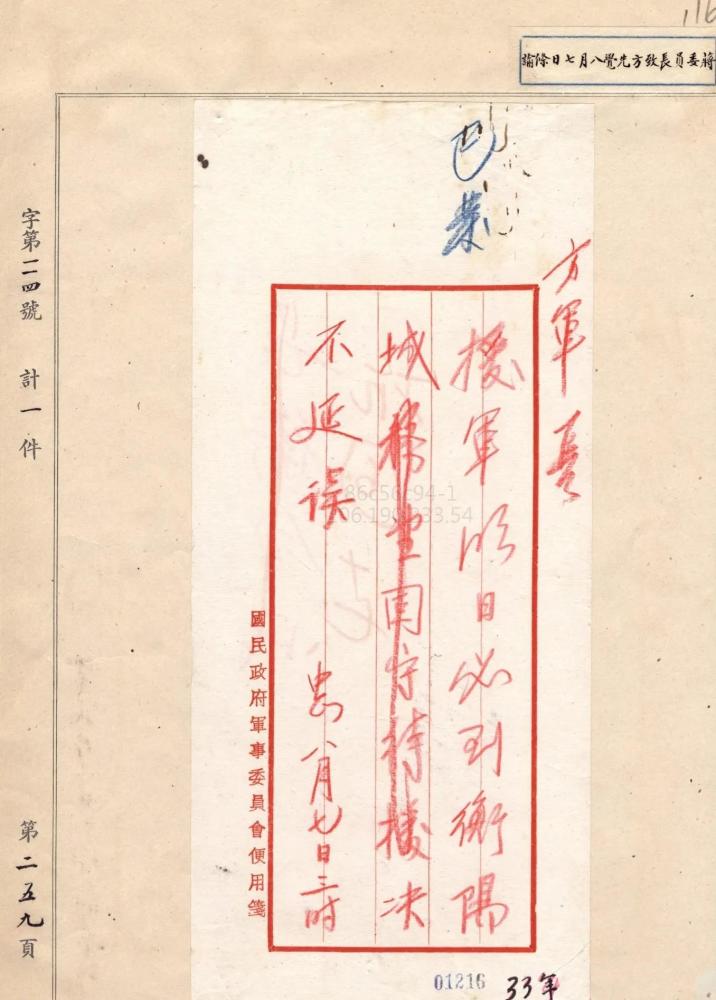 116
蔣委員長致方先覺八月七日條諭
方軍長
援軍明日必到衡陽
城務望固守待援决
不延误
中正 八月七日三时
國民政府軍事委員會便用箋
字第二四號 計一件 第二五九頁
01216 33年